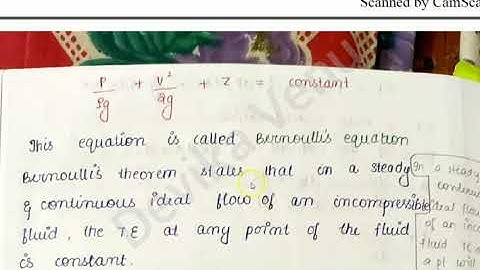 Scanned by CamSca
P/ρg + V²/2g + z = constant
This equation is called Bernoulli's equation
Bernoulli's theorem states that in a steady
& continuous ideal flow of an incompressible
fluid, the T.E at any point of the fluid
is constant.
In a steady
continuous
ideal flow
of an inco
fluid
a pt will
Devika Venu